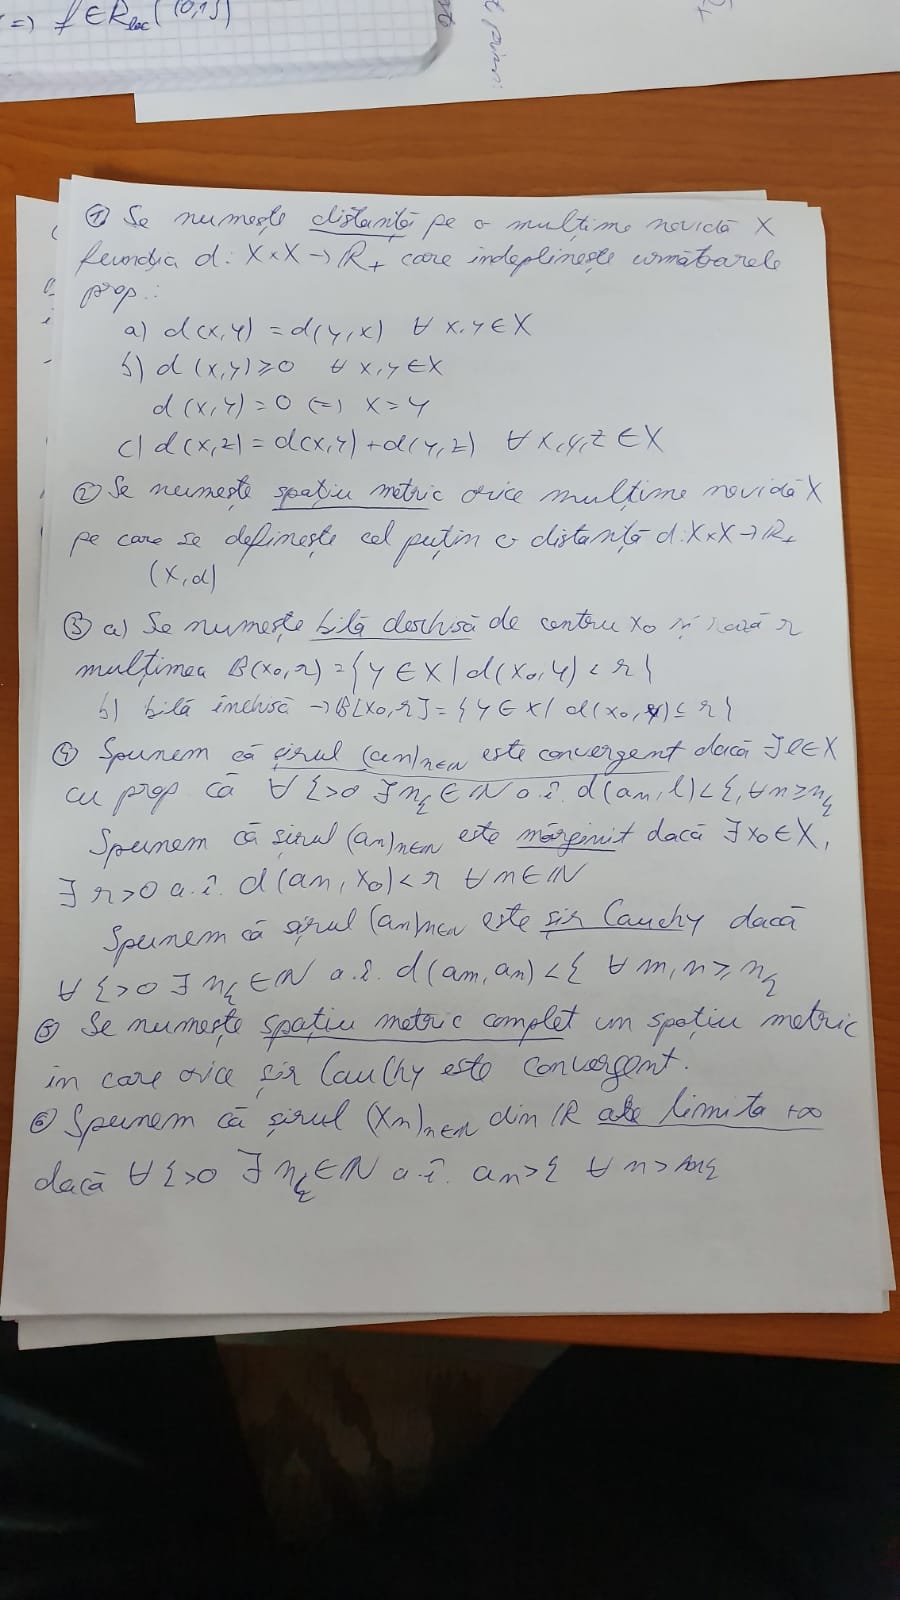 => f ∈ R_loc((0,1])
① Se numește distanță pe o mulțime nevidă X
funcția d: X×X → R₊ care îndeplinește următoarele
prop.:
a) d(x,y) = d(y,x) ∀ x,y ∈ X
b) d(x,y) ≥ 0 ∀ x,y ∈ X
d(x,y) = 0 (=) x = y
c) d(x,z) = d(x,y) + d(y,z) ∀ x,y,z ∈ X
② Se numește spațiu metric orice mulțime nevidă X
pe care se definește cel puțin o distanță d: X×X → R₊
(X,d)
③ a) Se numește bilă deschisă de centru x₀ și rază r
mulțimea B(x₀,r) = {y ∈ X | d(x₀,y) < r}
b) bilă închisă → B[x₀,r] = {y ∈ X | d(x₀,y) ≤ r}
④ Spunem că șirul (an)n∈N este convergent dacă ∃ l ∈ X
cu prop că ∀ ξ>0 ∃ n_ξ ∈ N a.î. d(an,l) < ξ, ∀ n ≥ n_ξ
Spunem că șirul (an)n∈N este mărginit dacă ∃ x₀ ∈ X,
∃ r>0 a.î. d(an,x₀) < r ∀ n ∈ N
Spunem că șirul (an)n∈N este șir Cauchy dacă
∀ ξ>0 ∃ n_ξ ∈ N a.î. d(am,an) < ξ ∀ m,n ≥ n_ξ
⑤ Se numește spațiu metric complet un spațiu metric
in care orice șir Cauchy este convergent.
⑥ Spunem că șirul (Xn)n∈N din R are limita +∞
dacă ∀ ξ>0 ∃ n_ξ ∈ N a.î. an > ξ ∀ n > n_ξ